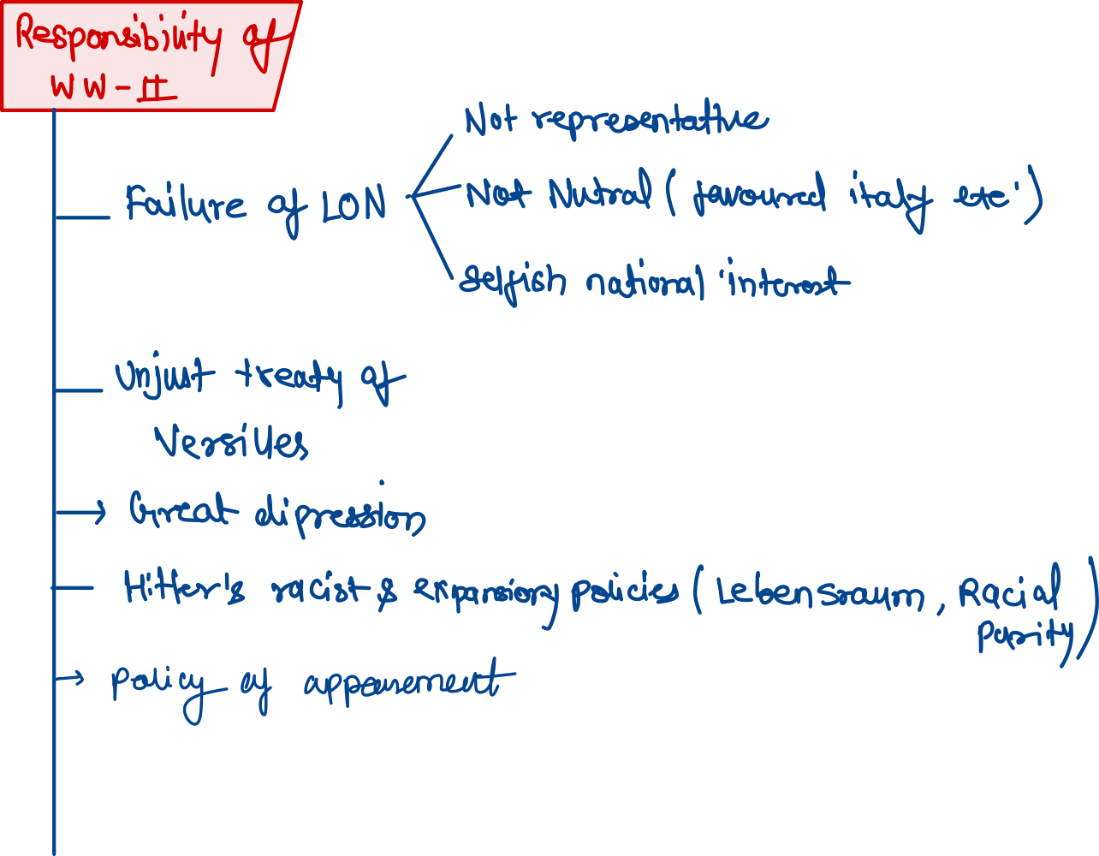 Responsibility of
WW-II
Not representative
Failure of LON
Not Nutral (favoured italy etc.)
Selfish national interest
Unjust treaty of
Versilles
Great dipression
Hitler's racist & expansiory policies (Lebensraum, Racial
Purity)
Policy of appeasement